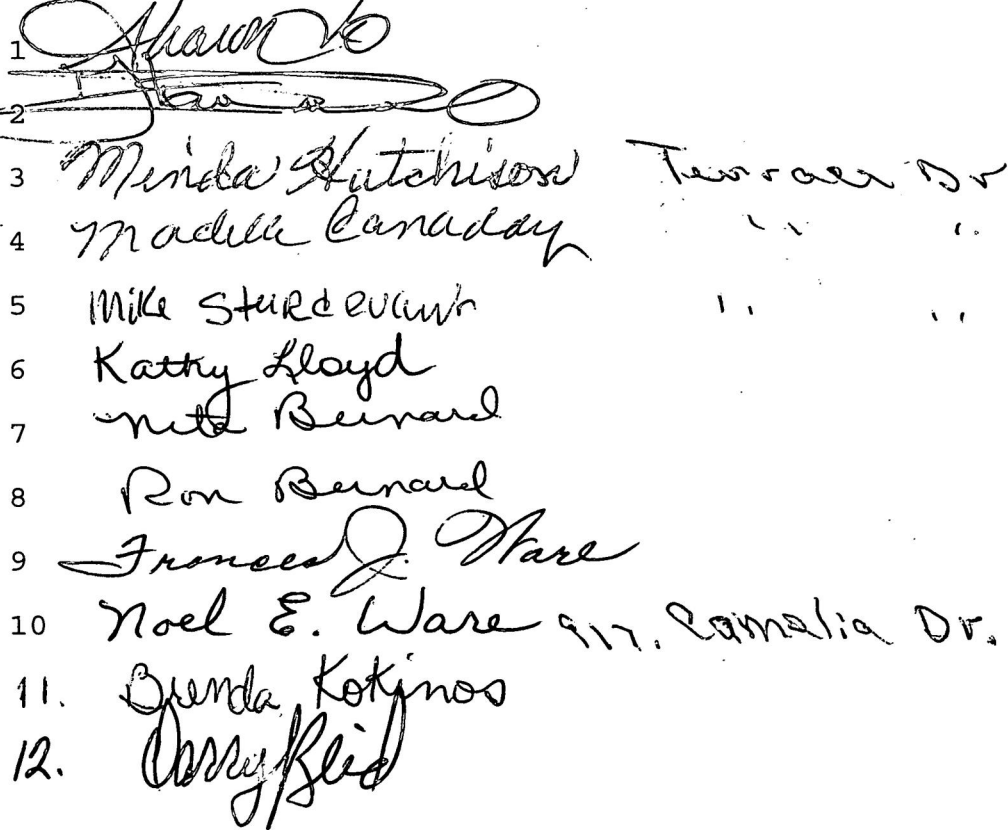 1 Shawn
2
3 Minda Hutchison Terrace Dr
4 Madelle Canaday " "
5 Mike Sturdevant " "
6 Kathy Lloyd
7 Nita Bernard
8 Ron Bernard
9 Frances J. Ware
10 Noel E. Ware 917. Camalia Dr.
11. Brenda Kokinos
12. Reid